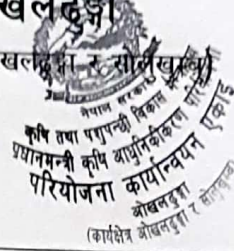 खलढुङ्गा
खलढुङ्गा र सोलुखुम्बु)
नेपाल सरकार
कृषि तथा पशुपन्छी विकास
प्रधानमन्त्री कृषि आधुनिकीकरण परियोजना
परियोजना कार्यान्वयन एकाइ
ओखलढुङ्गा
(कार्यक्षेत्र ओखलढुङ्गा र सोलुखुम्बु)